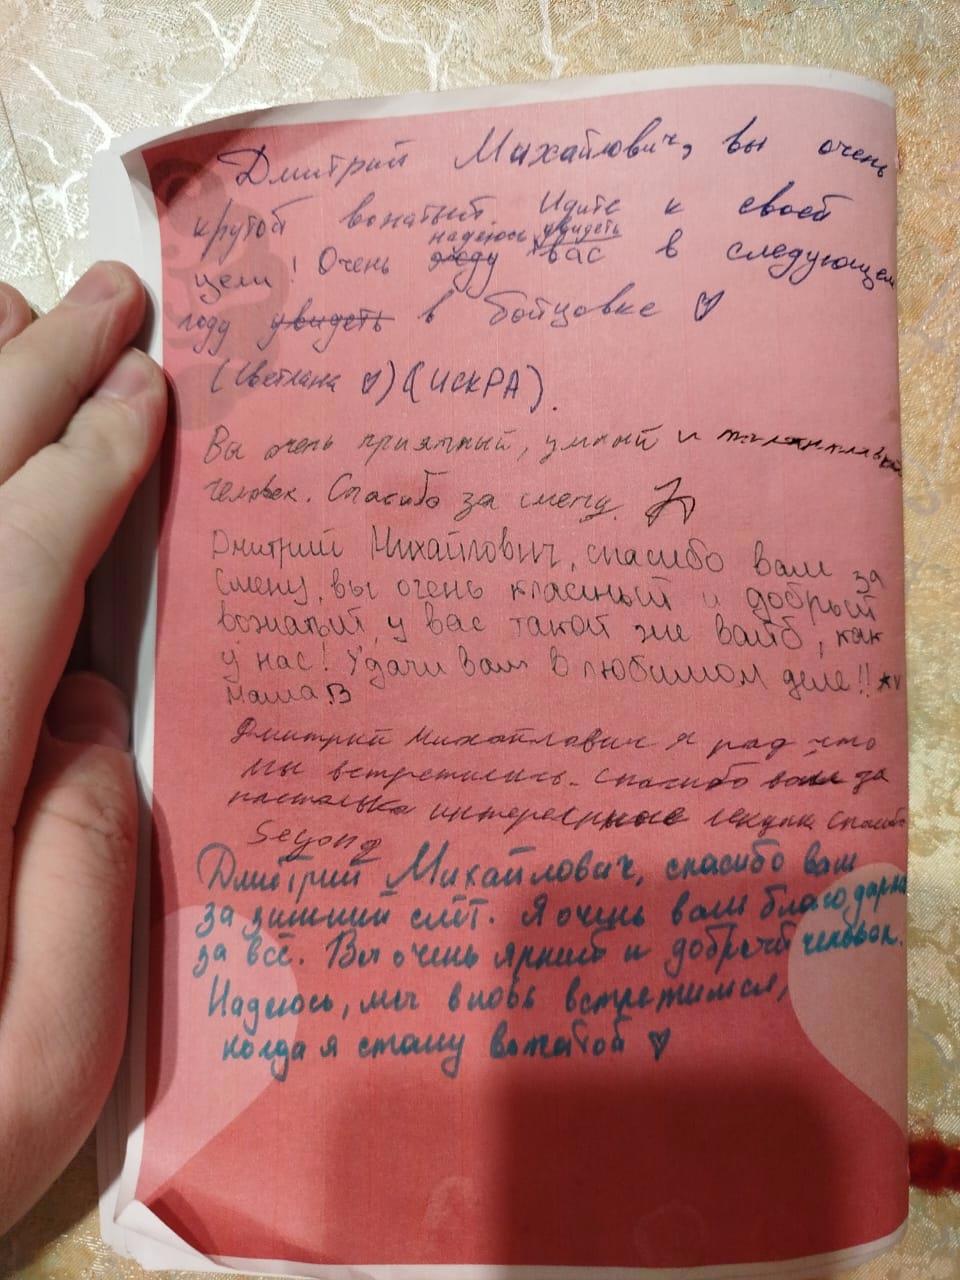 Дмитрий Михайлович, вы очень
крутой вожатый. Идите к своей
надеюсь увидеть
цели! Очень вас в следующем
году увидеть в бойцовке ♡
(Светлана ♡) (ИСКРА).
Вы очень приятный, умный и
человек. Спасибо за смену.
Дмитрий Михайлович, спасибо вам за
смену, вы очень классный и добрый
вожатый, у вас такой же вайб, как
у нас! Удачи вам в любимом деле!!
Маша В
Дмитрий Михайлович я рад что
мы встретились. Спасибо вам за
настолько интересные спасибо
Дмитрий Михайлович, спасибо вам
за зимний слёт. Я очень вам благодарна
за всё. Вы очень яркий и добрый человек.
Надеюсь, мы вновь встретимся,
когда я стану вожатой ♡